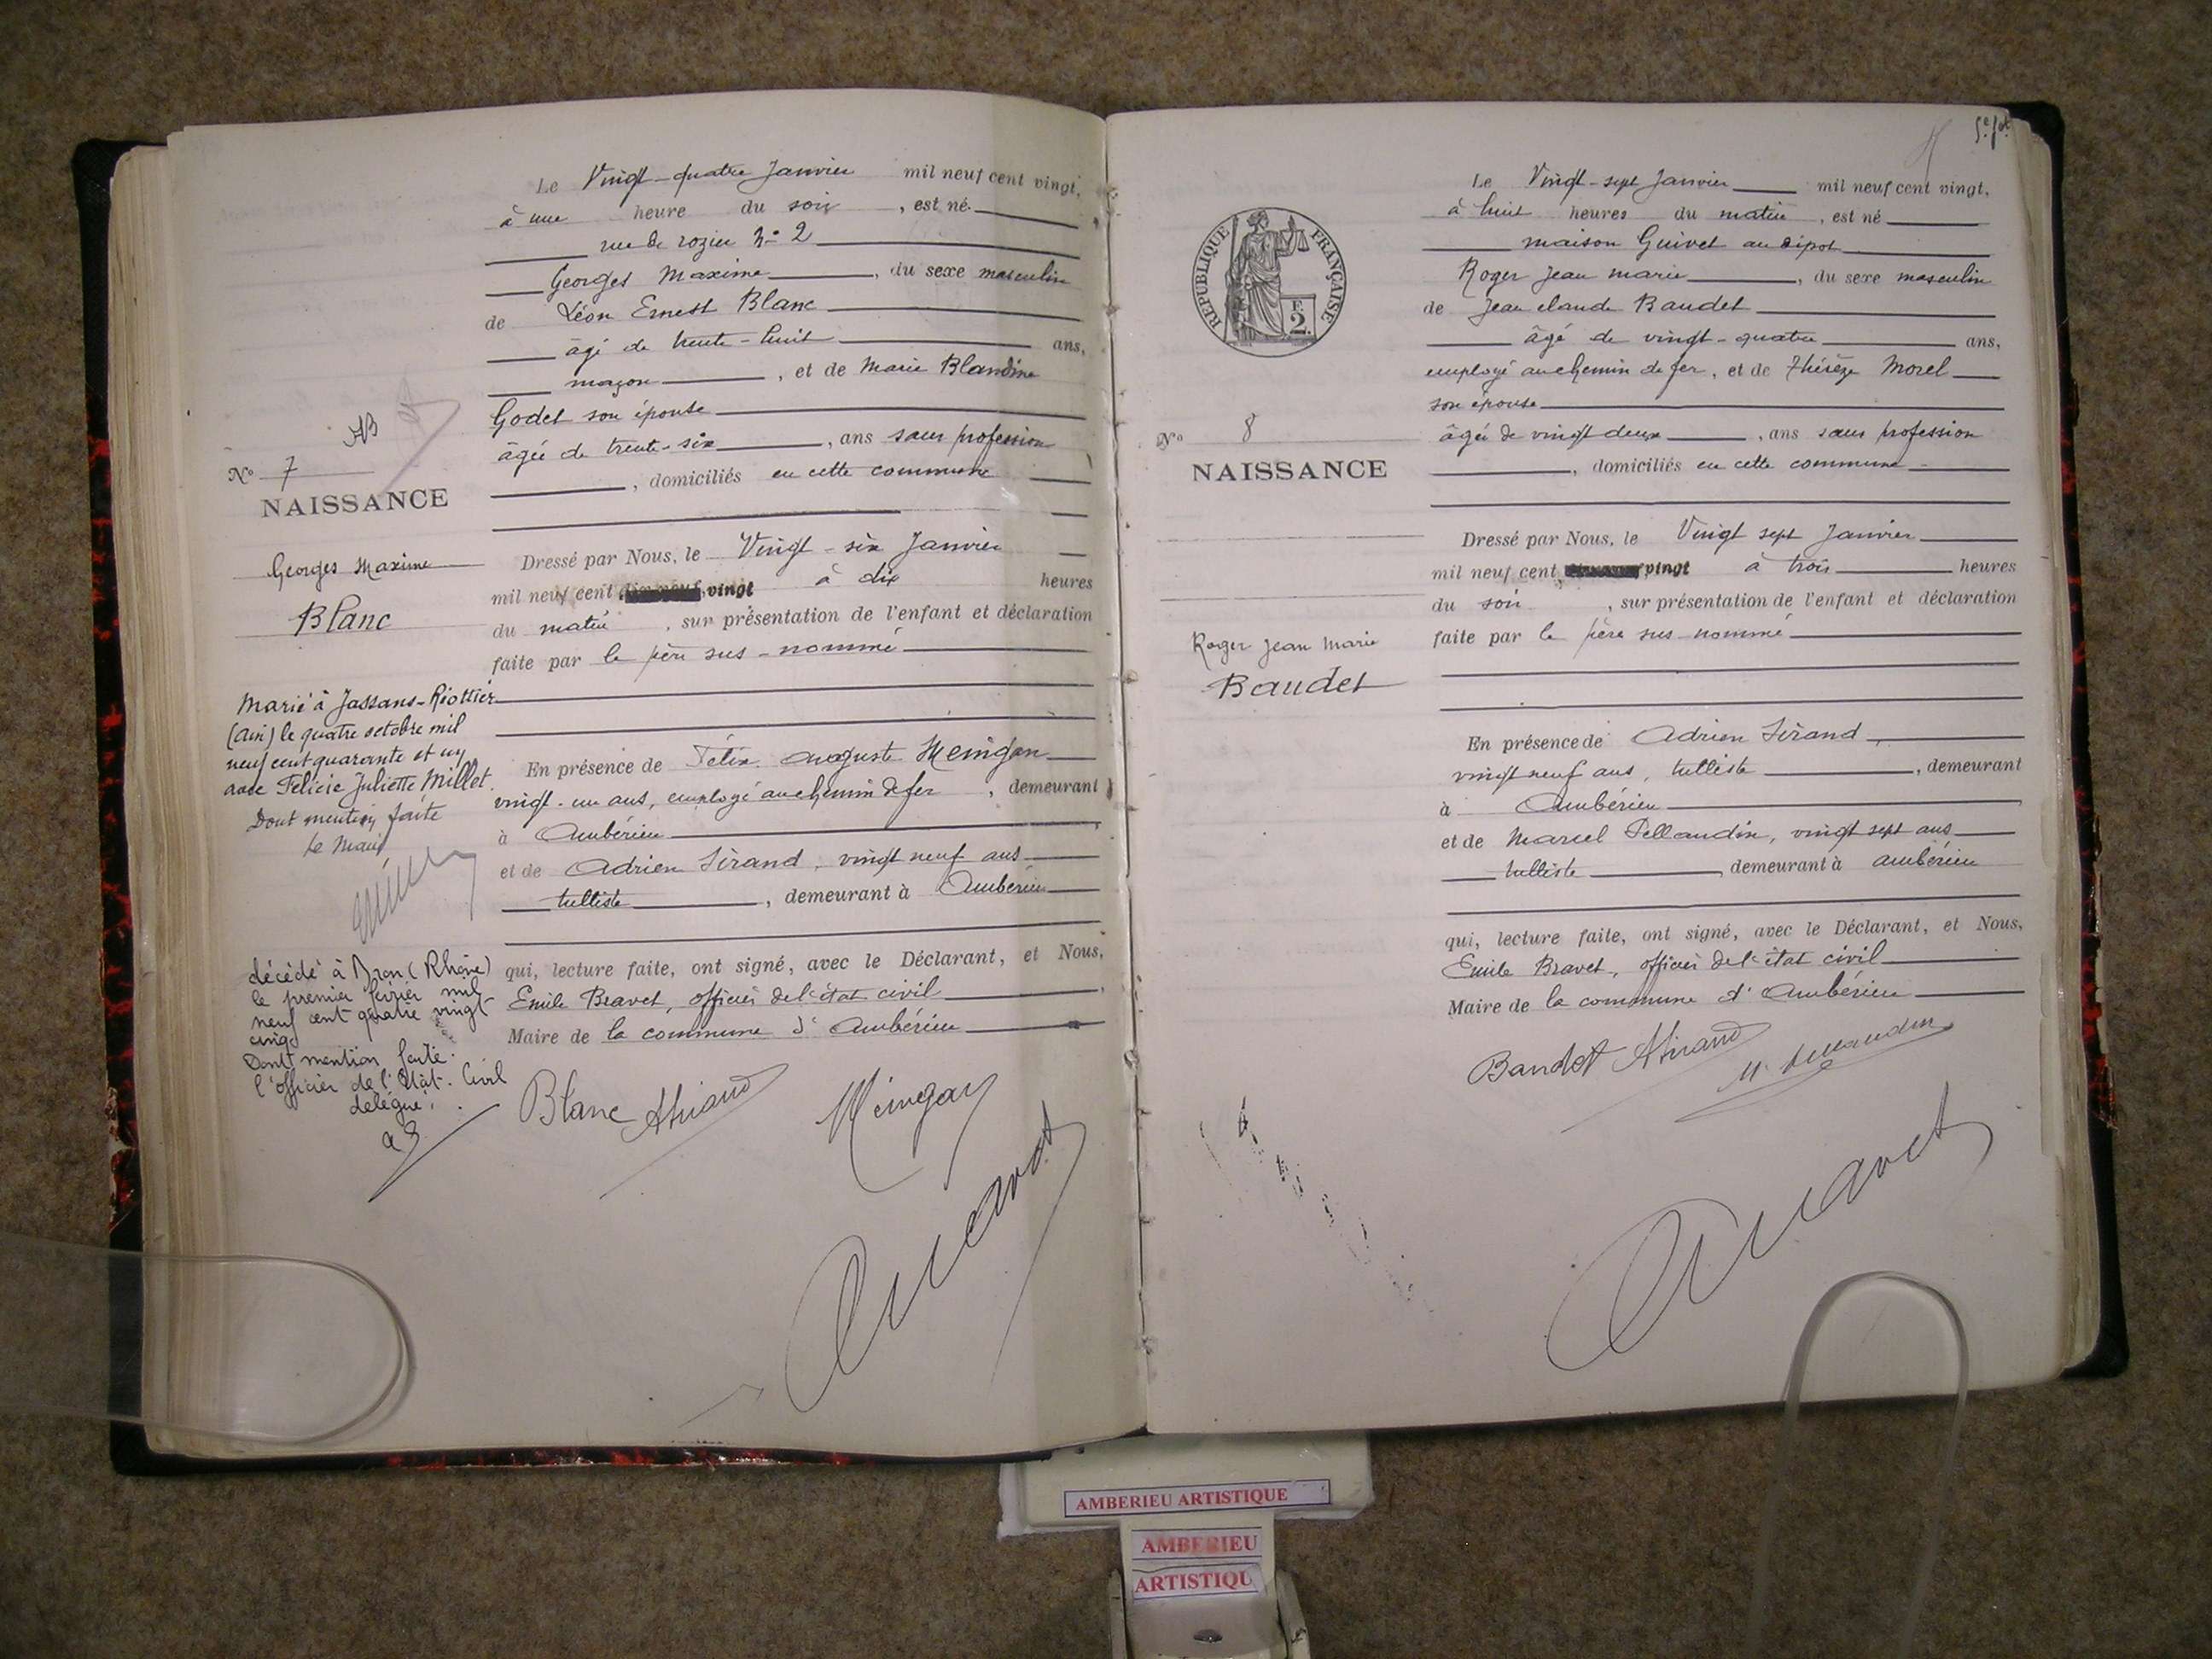 Le Vingt-quatre Janvier mil neuf cent vingt,
à une heure du soir, est né
rue de rozier No 2
Georges Maxime, du sexe masculin
de Léon Ernest Blanc
âgé de trente-huit ans,
maçon, et de Marie Blandine
Godet son épouse
âgée de trente-six, ans sans profession
, domiciliés en cette commune
Dressé par Nous, le Vingt-six Janvier
mil neuf cent vingt à dix heures
du matin, sur présentation de l'enfant et déclaration
faite par le père sus-nommé
En présence de Félix Auguste Meingan
vingt-un ans, employé au chemin de fer, demeurant
à Ambérieu
et de Adrien Sirand, vingt neuf ans
tulliste, demeurant à Ambérieu
qui, lecture faite, ont signé, avec le Déclarant, et Nous,
Emile Bravet, officier de l'état civil
Maire de la commune d'Ambérieu
Blanc ASirand Meingan
Bravet
AB
No 7
NAISSANCE
Georges Maxime
Blanc
Marié à Jassans-Riottier
(Ain) le quatre octobre mil
neuf cent quarante et un
avec Felicie Juliette Millet.
Dont mention faite
Le Maire
décédé à Bron (Rhône)
le premier février mil
neuf cent quatre vingt
cinq
Dont mention faite.
l'officier de l'Etat-Civil
délégué,
5e fet
Le Vingt-sept Janvier mil neuf cent vingt,
à huit heures du matin, est né
maison Guivet au dépot
Roger Jean Marie, du sexe masculin
de Jean Claude Baudet
âgé de vingt-quatre ans,
employé au chemin de fer, et de Thérèze Morel
son épouse
âgée de vingt deux, ans sans profession
, domiciliés en cette commune
Dressé par Nous, le Vingt sept Janvier
mil neuf cent vingt à trois heures
du soir, sur présentation de l'enfant et déclaration
faite par le père sus-nommé
En présence de Adrien Sirand,
vingt neuf ans, tulliste, demeurant
à Ambérieu
et de Marcel Pellaudin, vingt sept ans
tulliste, demeurant à Ambérieu
qui, lecture faite, ont signé, avec le Déclarant, et Nous,
Emile Bravet, officier de l'état civil
Maire de la commune d'Ambérieu
Baudet ASirand M. Pellaudin
Bravet
RÉPUBLIQUE FRANÇAISE
E.
2
No 8
NAISSANCE
Roger Jean Marie
Baudet
AMBERIEU ARTISTIQUE
AMBERIEU
ARTISTIQU